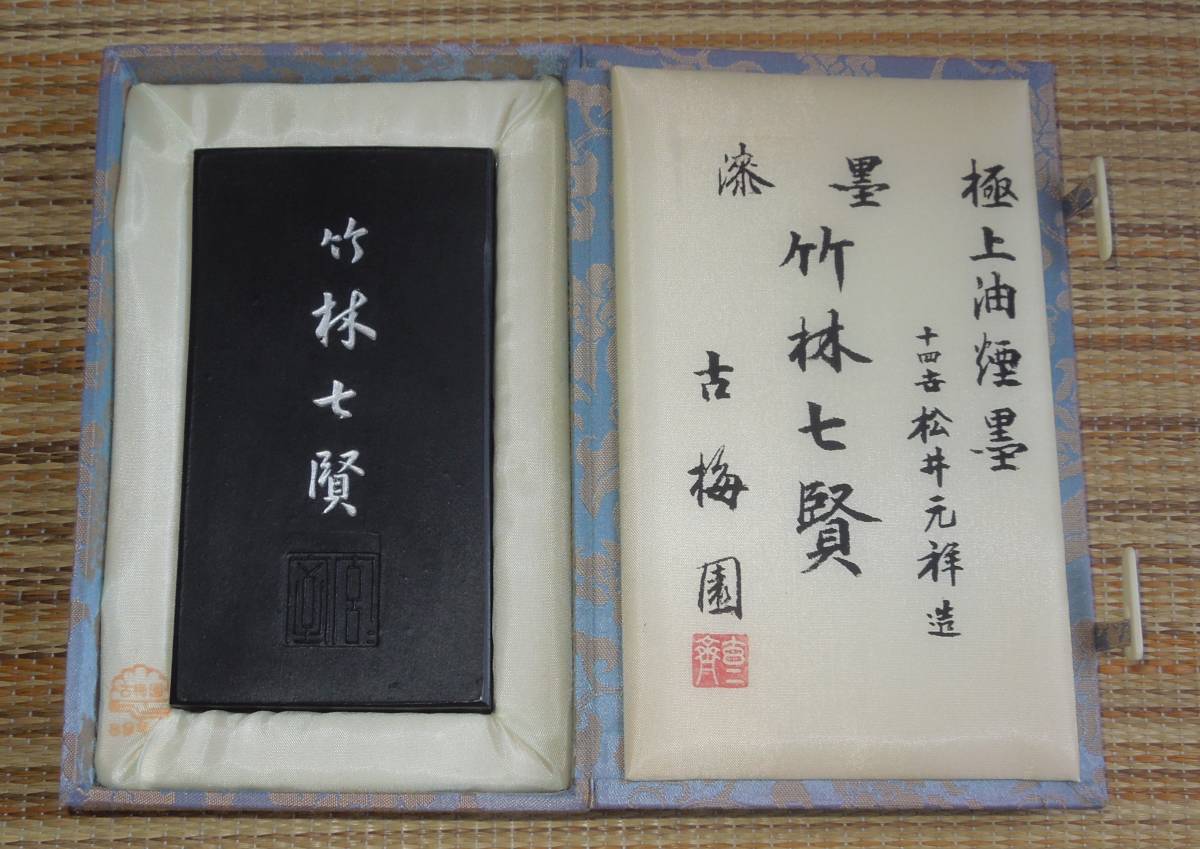 極上油煙墨
十四世 松井元祥造
漆墨
竹林七賢
古梅園
竹林七賢
古梅園